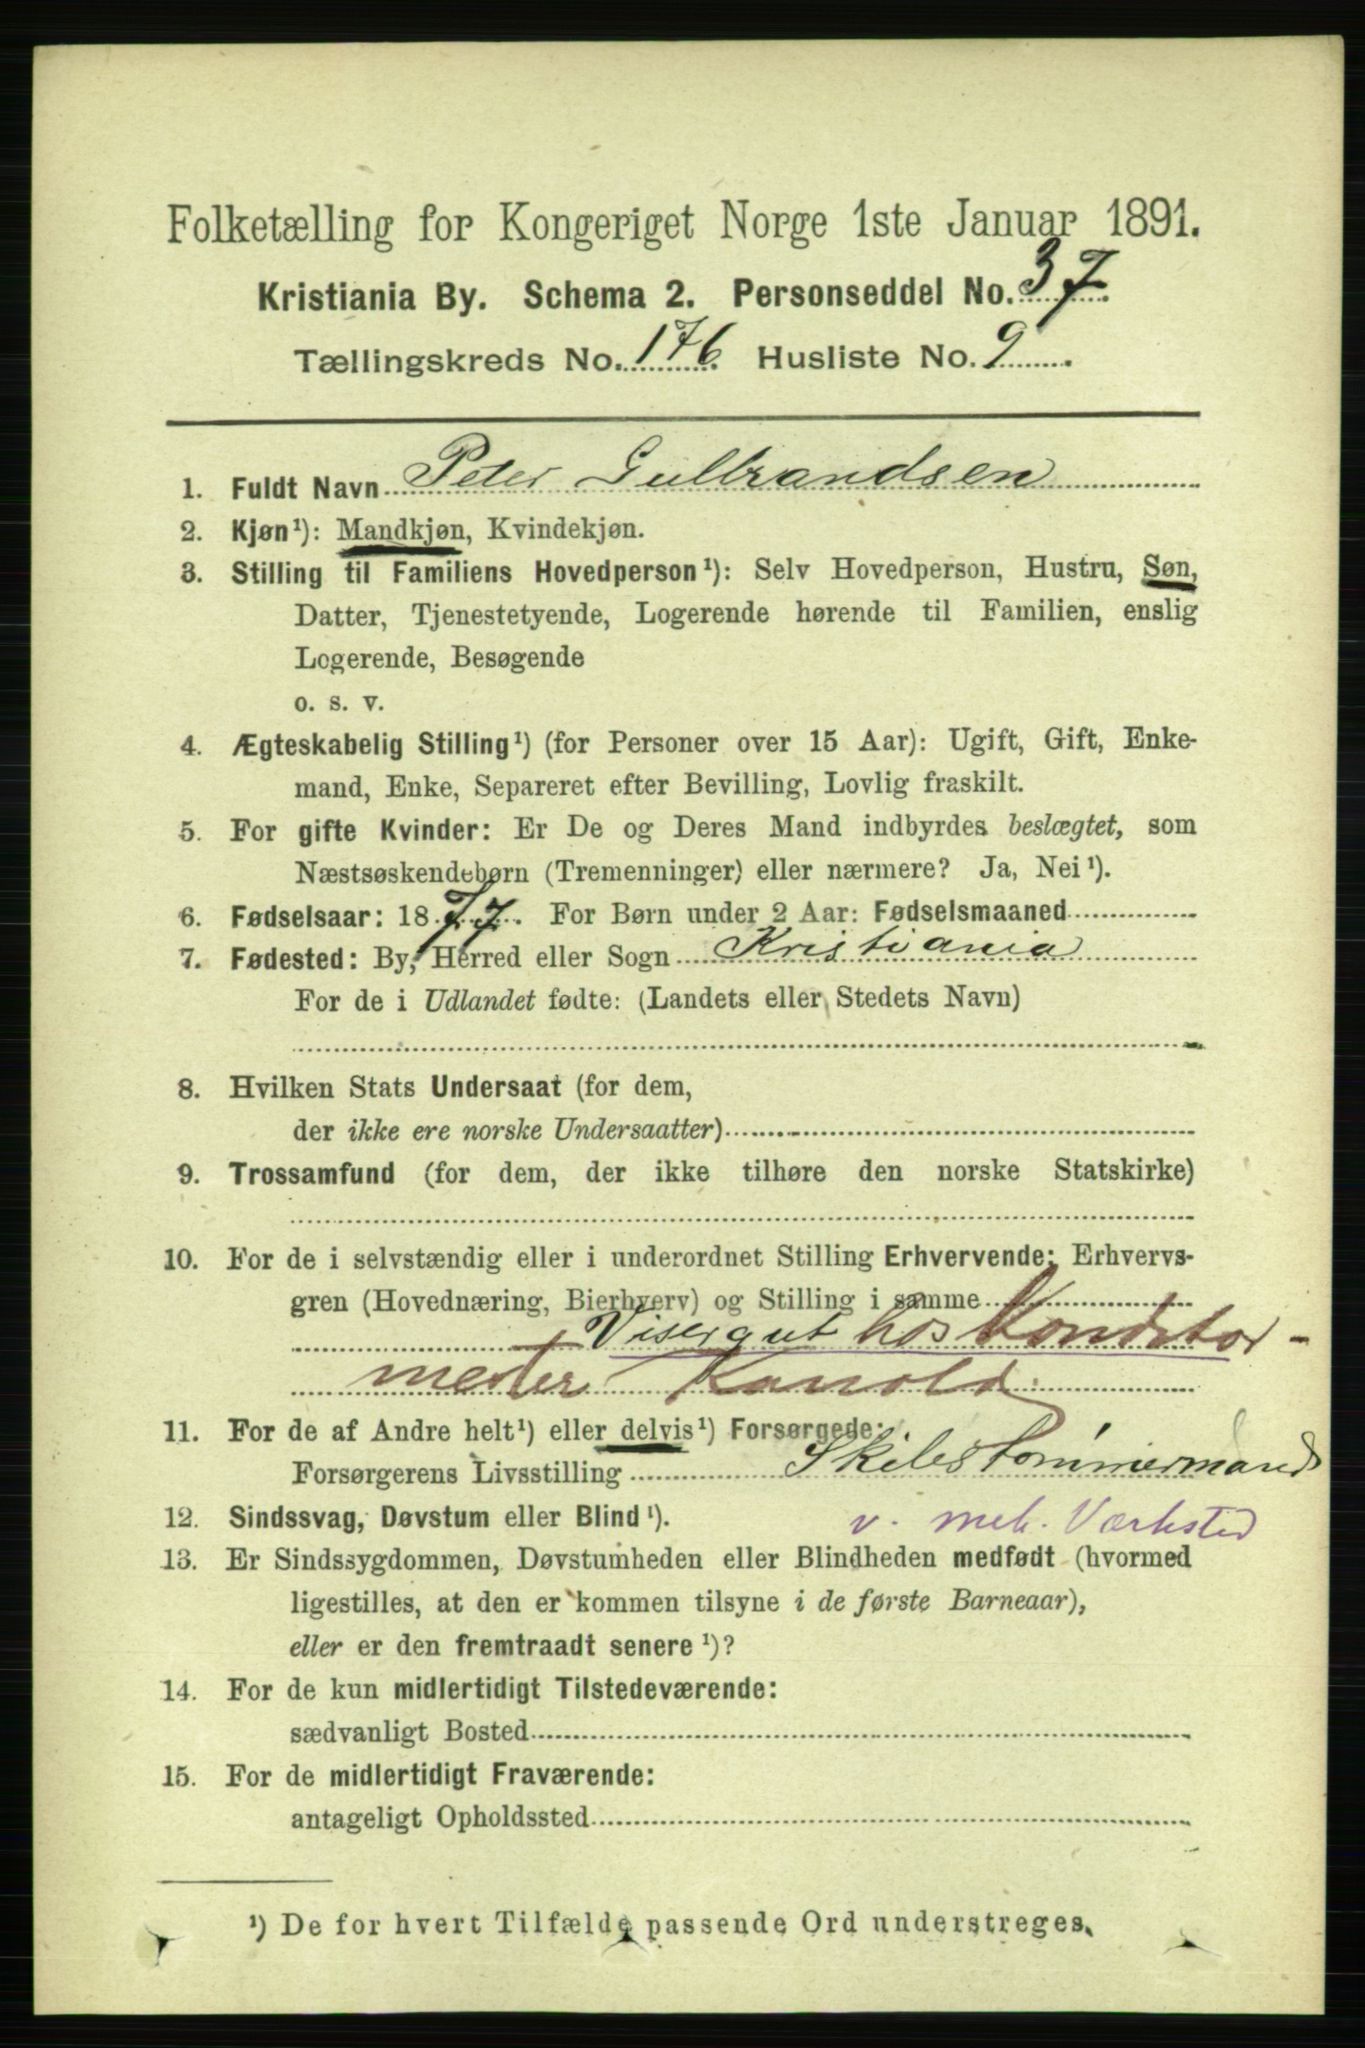 Folketælling for Kongeriget Norge 1ste Januar 1891.
Kristiania By. Schema 2. Personseddel No. 37.
Tællingskreds No. 176. Husliste No. 9.
1. Fuldt Navn Peter Gulbrandsen
2. Kjøn¹): Mandkjøn, Kvindekjøn.
3. Stilling til Familiens Hovedperson¹): Selv Hovedperson, Hustru, Søn,
Datter, Tjenestetyende, Logerende hørende til Familien, enslig
Logerende, Besøgende
o. s. v.
4. Ægteskabelig Stilling¹) (for Personer over 15 Aar): Ugift, Gift, Enke-
mand, Enke, Separeret efter Bevilling, Lovlig fraskilt.
5. For gifte Kvinder: Er De og Deres Mand indbyrdes beslægtet, som
Næstsøskendebørn (Tremenninger) eller nærmere? Ja, Nei¹).
6. Fødselsaar: 1877. For Børn under 2 Aar: Fødselsmaaned
7. Fødested: By, Herred eller Sogn Kristiania
For de i Udlandet fødte: (Landets eller Stedets Navn)
8. Hvilken Stats Undersaat (for dem,
der ikke ere norske Undersaatter)
9. Trossamfund (for dem, der ikke tilhøre den norske Statskirke)
10. For de i selvstændig eller i underordnet Stilling Erhvervende: Erhvervs-
gren (Hovednæring, Bierhverv) og Stilling i samme
Visergut hos Konditor-
mester Kanold
11. For de af Andre helt¹) eller delvis¹) Forsørgede:
Forsørgerens Livsstilling Skibstømmermand
v. mek. Værksted
12. Sindssvag, Døvstum eller Blind¹).
13. Er Sindssygdommen, Døvstumheden eller Blindheden medfødt (hvormed
ligestilles, at den er kommen tilsyne i de første Barneaar),
eller er den fremtraadt senere¹)?
14. For de kun midlertidigt Tilstedeværende:
sædvanligt Bosted
15. For de midlertidigt Fraværende:
antageligt Opholdssted
¹) De for hvert Tilfælde passende Ord understreges.